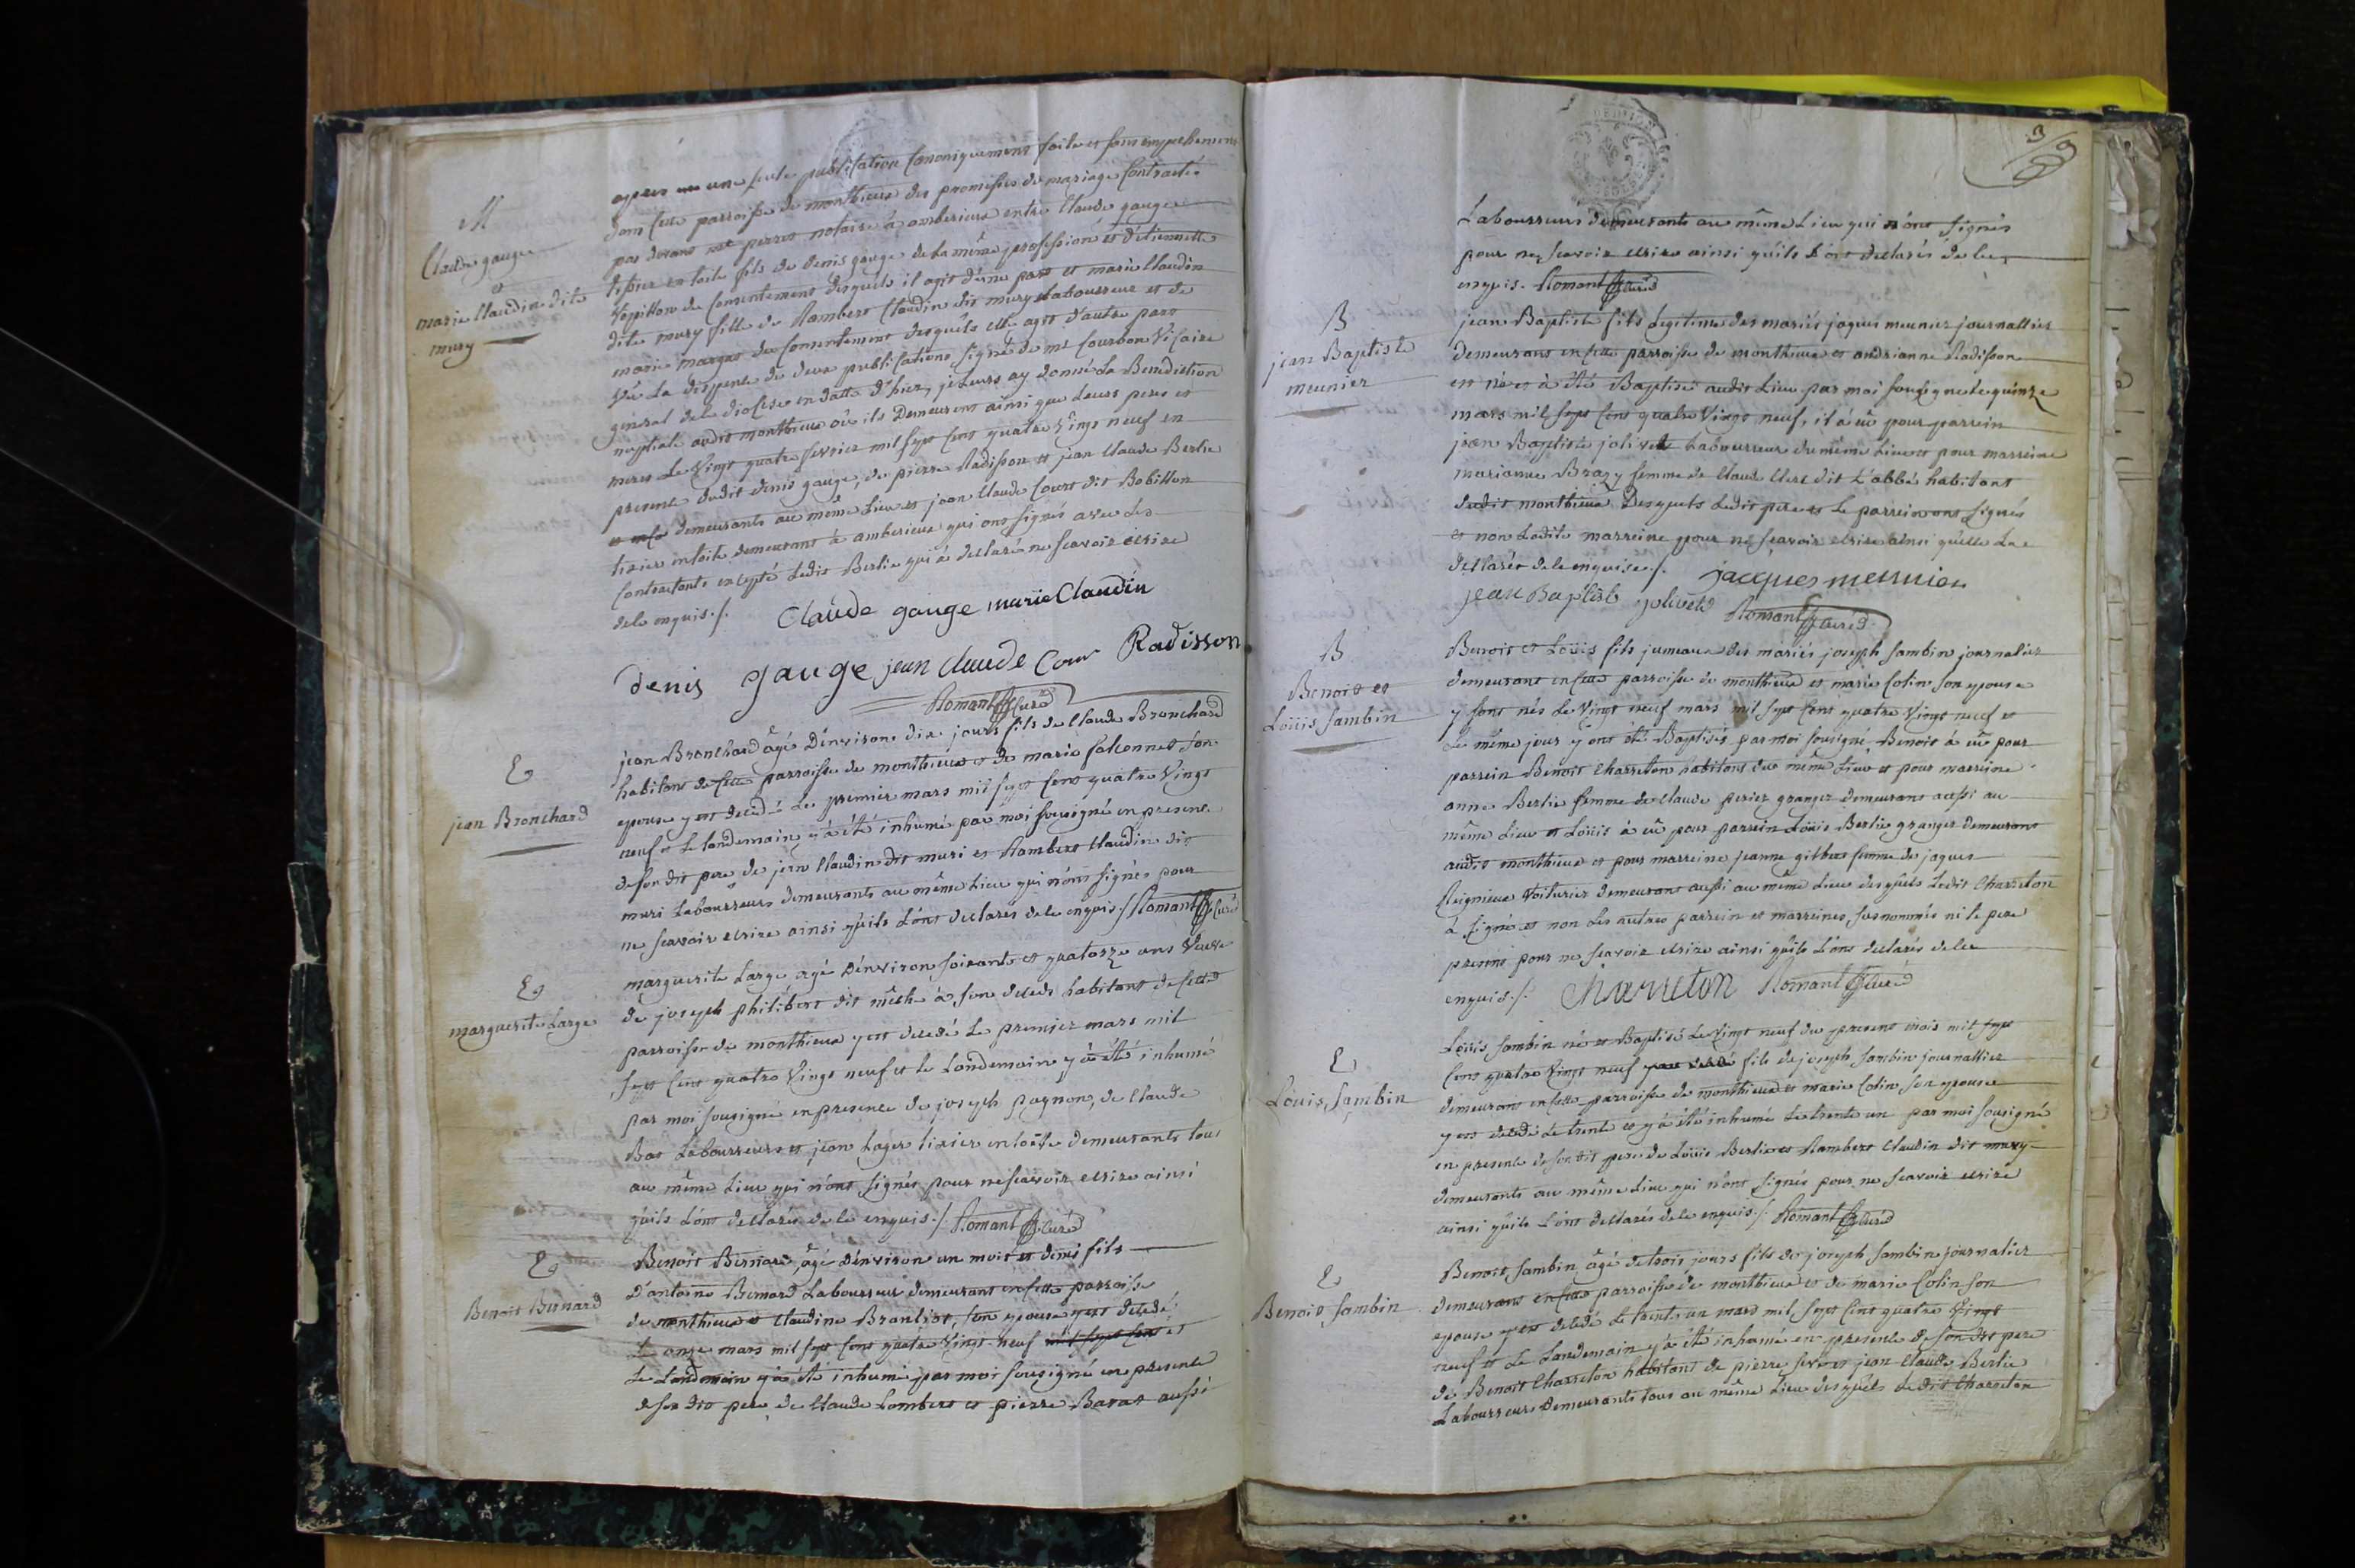 M
Claude gauge
et
marie Claudin dite
mury
apres une seule publication canoniquement faite et sans empechement
dans cette parroisse de monthieux des promesses de mariage contractée
par devant me perret notaire à amberieux entre Claude gauge
tissier en toile fils de denis gauge de la même profession et d'étiennette
de consentement desquels il agit d'une part et marie Claudin
dite mury fille de Rambert Claudin dit mury Labourreur et de
marie margat du consentement desquels elle agit d'autre part
Vû La dispense de deux publications signé de mr Courbon Vicaire
géneral de ce diocese en datte d'hier, je Leurs ay donné La Benediction
nuptiale audit monthieux où ils Demeurent ainsi que Leurs peres et
meres Le Vingt quatre fevrier mil sept cent quatre Vingt neuf en
presence dudit denis gauge, de pierre Radisson et jean Claude Berlie
demeurants au même Lieu et jean Claude Court dit Bobillon
tixier en toile demeurant à amberieux qui ont signés avec Les
Contractants excepté Ledit Berlie qui à declaré ne scavoir ecrire
de ce enquis ./.
Claude gauge marie Claudin
denis gauge jean claude Cour Radisson
Romant Curé
E
jean Bronchard
jean Bronchard âgé D'environs dix jours fils de Claude Bronchard
habitant de cette parroisse de monthieux et de marie falconnet son
epouse y est decedé Le premier mars mil sept cent quatre Vingt
neuf et Le landemain y à été inhumé par moi sousigné en presence
de son dit pere de jean Claudin dit muri et Rambert Claudin dit
muri Labourreurs demeurants au même Lieu qui n'ont signés pour
ne scavoir ecrire ainsi qu'ils L'ont declarés de ce enquis ./. Romant Curé
E
marguerite Large
marguerite Large agé D'environ soixante et quatorze ans Veuve
de joseph philibert dit mêche à son deceds habitant de cette
parroisse de monthieux y est decedé Le premier mars mil
sept cent quatre Vingt neuf et le Landemain y à été inhumé
par moi sousigné en presence de joseph pagnon, de Claude
Bas Labourreurs et jean Lager tixier en toile demeurants tous
au même Lieu qui n'ont signés pour ne scavoir ecrire ainsi
qu'ils L'ont declarés de ce enquis ./. Romant Curé
E
Benoit Bernard
Benoit Bernard, âgé D'environ un mois et demi fils
D'antoine Bernard Labourreur demeurant en cette parroise
de monthieux et Claudine Branliot, son epouse y est decedé
Le onze mars mil sept cent quatre Vingt neuf mil sept cent et
Le Landemain y à été inhumé par moi sousigné en presence
de son dit pere, de Claude Lombert et pierre Barat aussi
39
Labourreurs demeurants au même Lieu qui n'ont signés
pour ne scavoir ecrire ainsi qu'ils L'ont declarés de ce
enquis. Romant Curé
B
jean Baptiste
meunier
jean Baptiste fils Legitime des mariés jaques meunier journallier
demeurant en cette parroisse de monthieux et andrianne Radisson
est né et à été Baptisé audit Lieu par moi sousigné le quinze
mars mil sept cent quatre Vingt neuf, il à eû pour parrein
jean Baptiste jolivet Labourreur du même Lieu et pour marreine
marianne Brazy femme de Claude Clerc dit L'abbé habitant
dudit monthieux Desquels Ledit pere et Le parrein ont signés
et non Ladite marreine pour ne scavoir ecrire ainsi qu'elle La
declarés de ce enquise ./. jacques meunier
jean Baptiste jolivet Romant Curé
B
Benoit et
Loüis Sambin
Benoit et Loüis fils jumeaux des mariés joseph Sambin journalier
demeurant en cette parroisse de monthieux et marie Colin son epouse
y sont nés Le Vingt neuf mars mil sept cent quatre Vingt neuf et
Le même jour y ont été Baptisés par moi sousigné, Benoit à eû pour
parrein Benoit Charreton habitant du même Lieu et pour marreine
anne Berlie femme de Claude perier granger demeurant aussi au
même Lieu et Loüis à eû pour parrein Loüis Berlie granger demeurant
audit monthieux et pour marreine jeanne gilbert femme de jaques
Reignieux Voiturier demeurant aussi au même Lieu desquels Ledit Charreton
à signé et non Les autres parrein et marreines, susnommés ni le pere
present pour ne scavoir ecrire ainsi qu'ils L'ont declarés de ce
enquis ./. Charreton Romant Curé
E
Loüis Sambin
Loüis Sambin né et Baptisé Le Vingt neuf du present mois mil sept
cent quatre Vingt neuf y est decedé fils de joseph Sambin journallier
demeurant en cette parroisse de monthieux et marie Colin, son epouse
y est decedé Le trente et y à été inhumé Le trente un par moi sousigné
en presence de son dit pere de Loüis Berlie et Rambert Claudin dit mury
demeurants au même Lieu qui n'ont signés pour ne scavoir ecrire
ainsi qu'ils L'ont declarés de ce enquis ./. Romant Curé
E
Benoit Sambin
Benoit Sambin âgé de trois jours fils de joseph Sambin journalier
demeurant en cette parroisse de monthieux et de marie Colin son
epouse y est decedé Le trente un mars mil sept cent quatre Vingt
neuf et Le Landemain y à été inhumé en presence de son dit pere
de Benoit Charreton habitant de pierre et jean Claude Berlie
Labourreurs Demeurants tous au même Lieu desquels Ledit Charreton